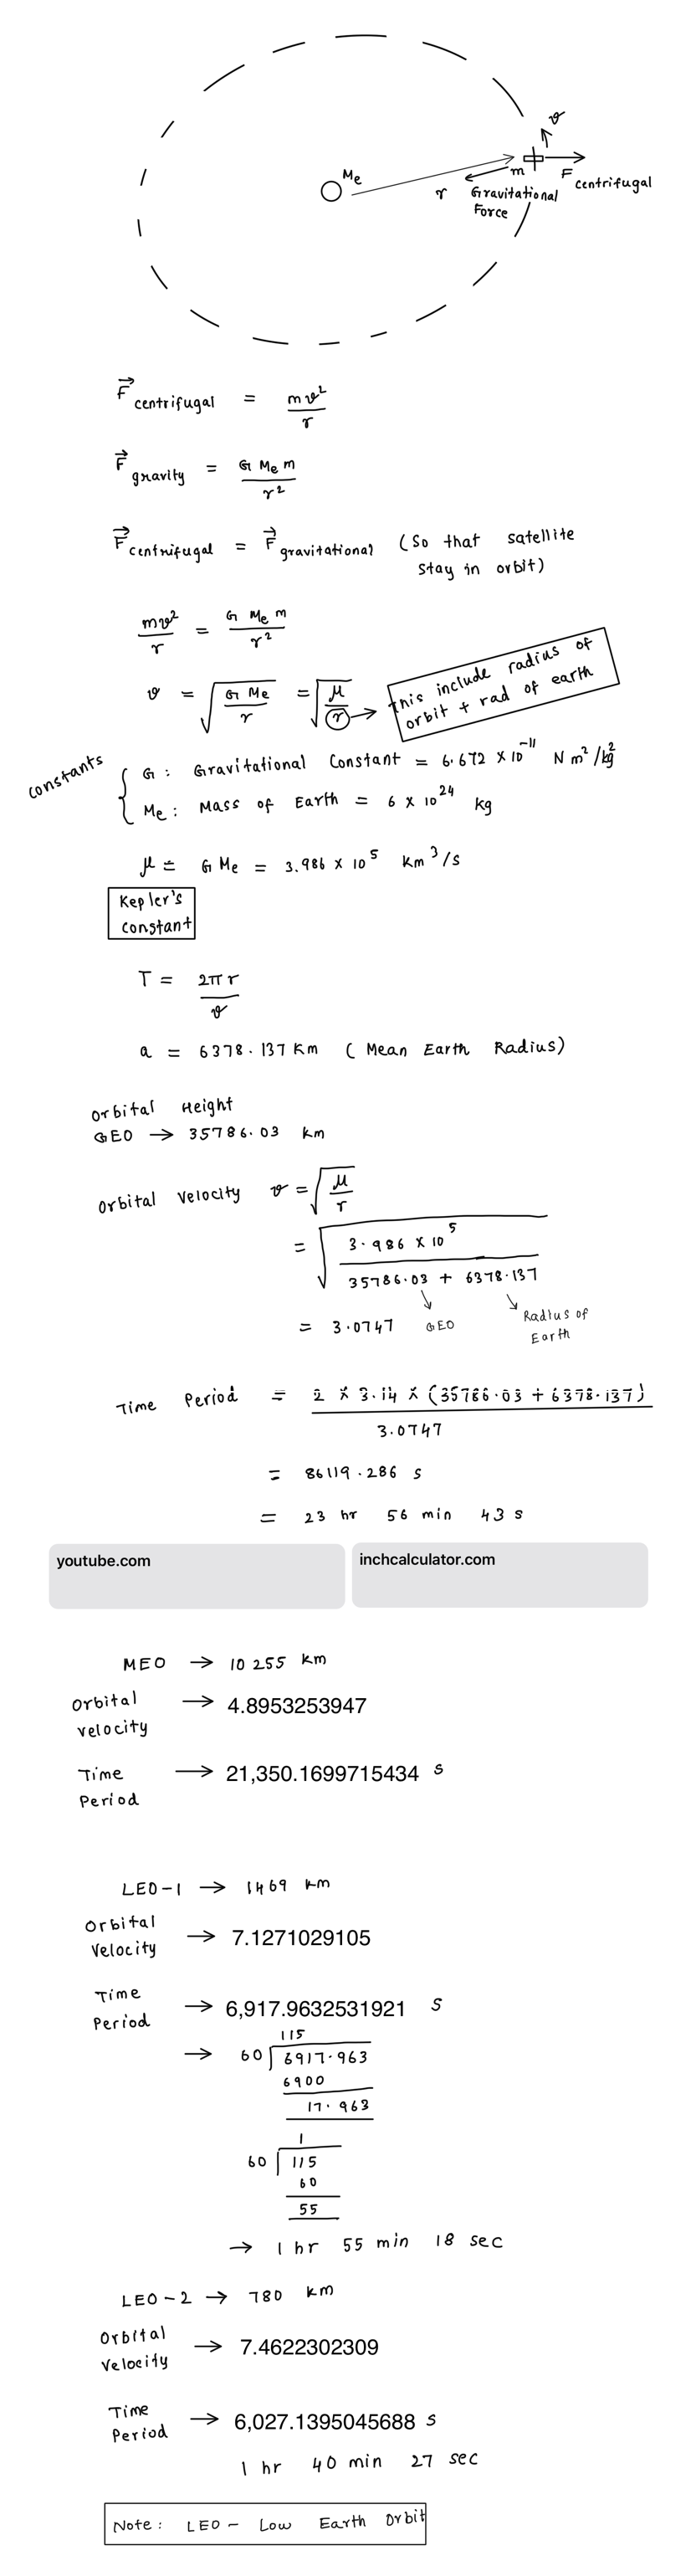 Me
v
m
F centrifugal
r
Gravitational
Force
F centrifugal = mv²/r
F gravity = G Me m/r²
F centrifugal = F gravitational (So that satellite
stay in orbit)
mv²/r = G Me m/r²
v = √(G Me/r) = √(μ/r) → This include radius of
orbit + rad of earth
constants
G: Gravitational Constant = 6.672 × 10⁻¹¹ N m²/kg²
Me: Mass of Earth = 6 × 10²⁴ kg
μ = G Me = 3.986 × 10⁵ Km³/s
Kepler's
constant
T = 2πr/v
a = 6378.137 Km (Mean Earth Radius)
Orbital Height
GEO → 35786.03 km
Orbital Velocity v = √(μ/r)
= √(3.986 × 10⁵/(35786.03 + 6378.137))
= 3.0747 GEO Radius of
Earth
Time Period = 2 × 3.14 × (35786.03 + 6378.137)/3.0747
= 86119.286 s
= 23 hr 56 min 43 s
youtube.com
inchcalculator.com
MEO → 10255 km
Orbital
Velocity → 4.8953253947
Time
Period → 21,350.1699715434 s
LEO-1 → 1469 km
Orbital
Velocity → 7.1271029105
Time
Period → 6,917.9632531921 s
115
→ 60 6917.963
6900
17.963
1
60 115
60
55
→ 1 hr 55 min 18 sec
LEO-2 → 780 km
Orbital
Velocity → 7.4622302309
Time
Period → 6,027.1395045688 s
1 hr 40 min 27 sec
Note: LEO - Low Earth Orbit